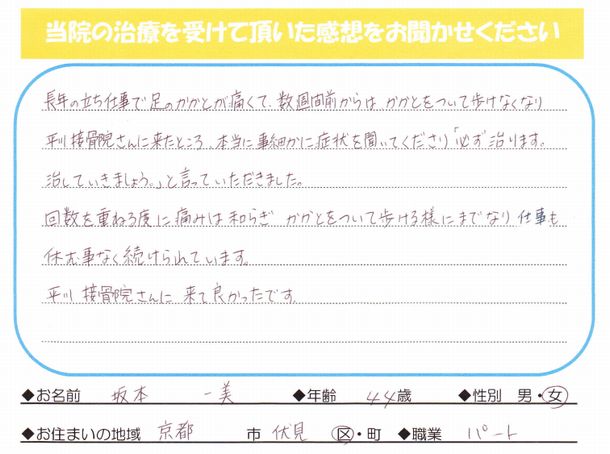 当院の治療を受けて頂いた感想をお聞かせください
長年の立ち仕事で足のかかとが痛くて、数週間前からは かかとをついて歩けなくなり
平川接骨院さんに来たところ、本当に事細かに症状を聞いてくださり「必ず治ります。
治していきましょう。」と言っていただきました。
回数を重ねる度に痛みは和らぎ かかとをついて歩ける様にまでなり 仕事も
休む事なく続けられています。
平川接骨院さんに 来て良かったです。
◆お名前 坂本 一美 ◆年齢 44歳 ◆性別 男・女
◆お住まいの地域 京都 市 伏見 区・町 ◆職業 パート